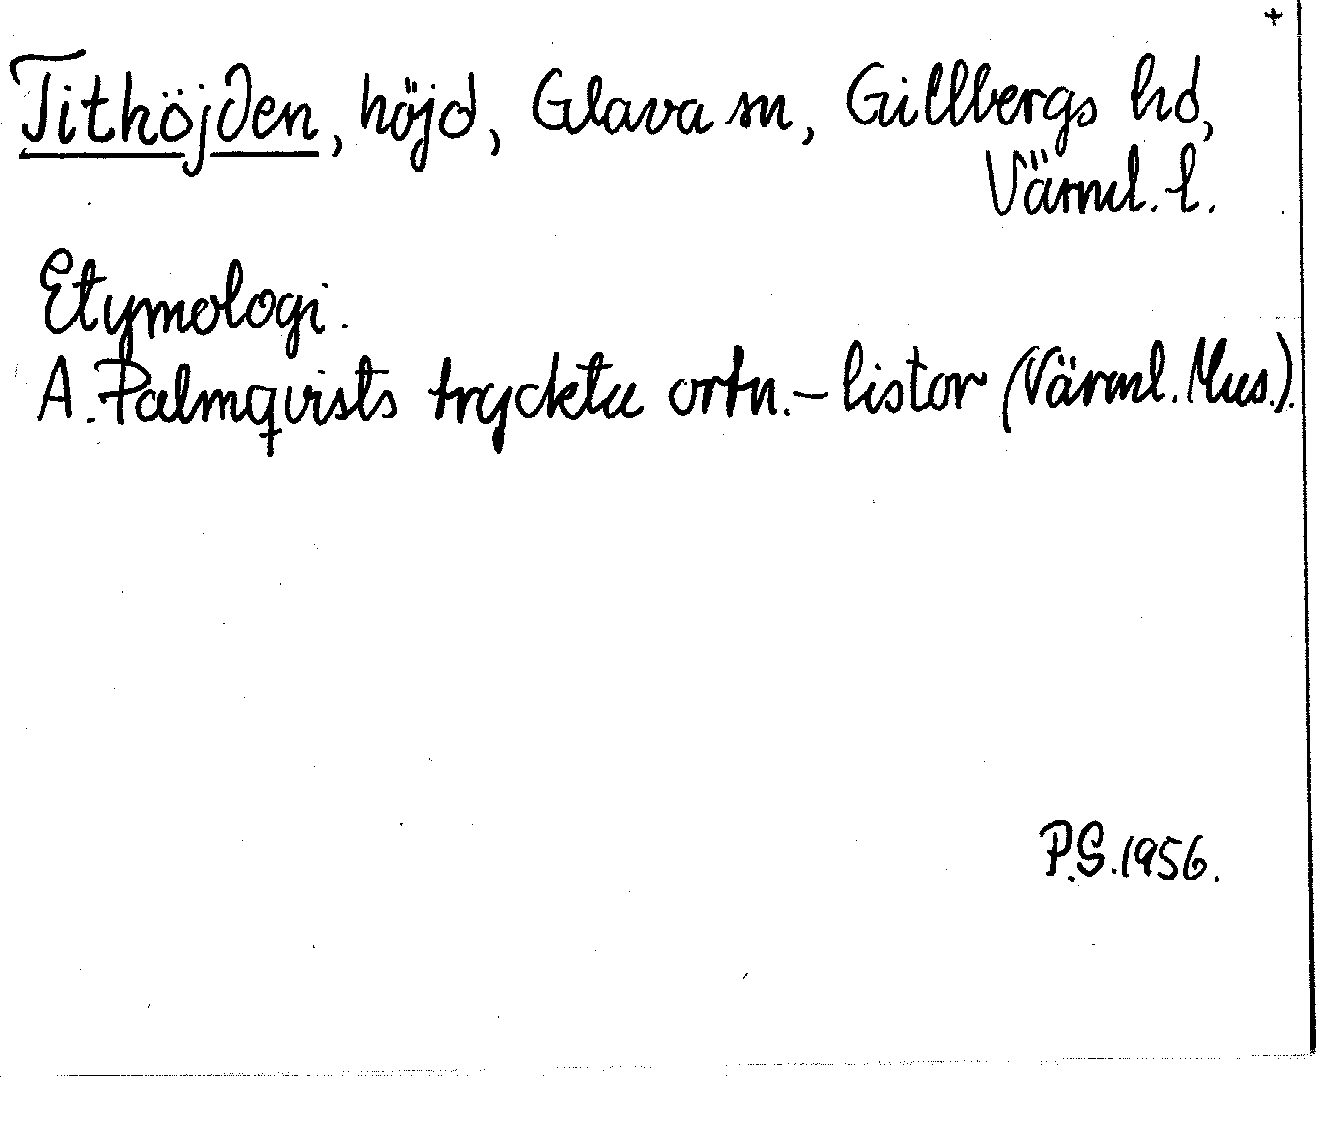 +
Tithöjden, höjd, Glava sn, Gillbergs hd,
Värml. l.
Etymologi.
A. Palmqvists tryckta ortn.-listor (Värml. Mus.).
P.S. 1956.